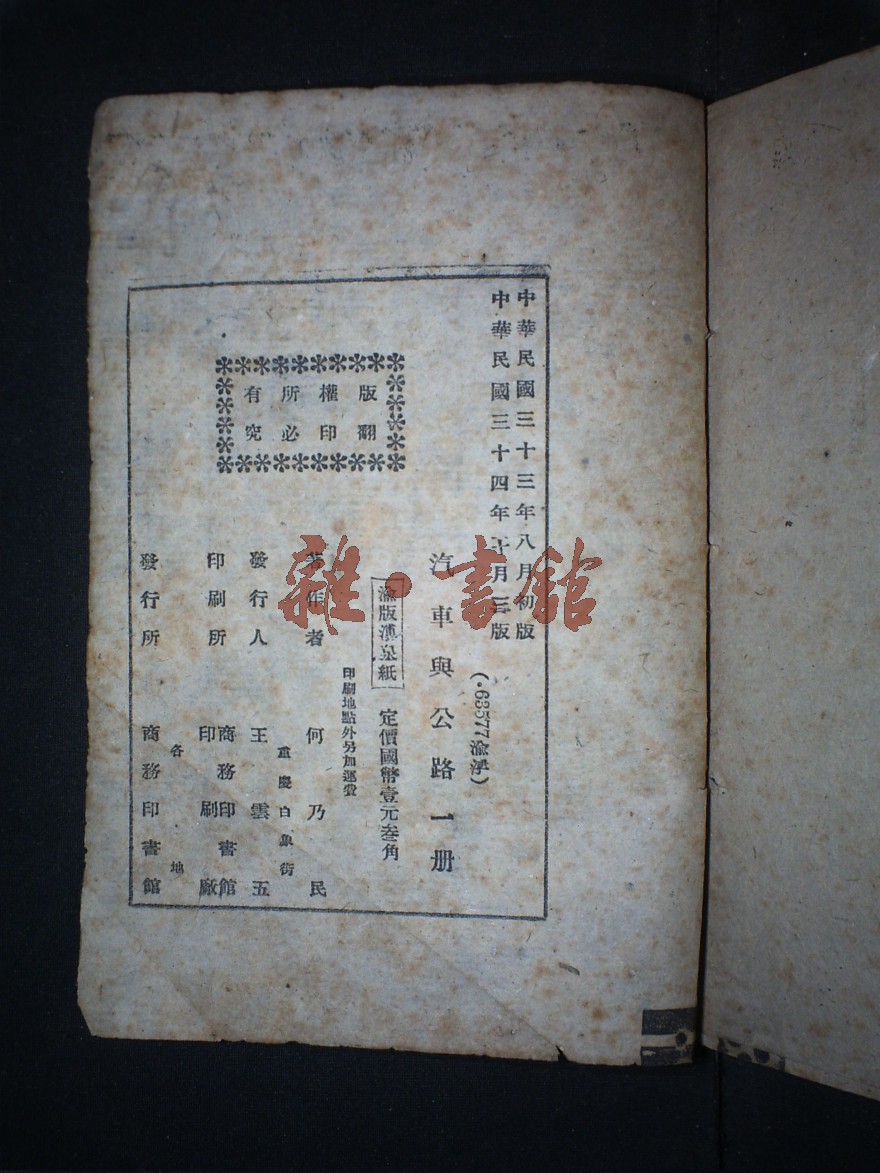 中華民國三十三年八月初版
中華民國三十四年十月三版
(·63577渝淨)
汽車與公路一册
渝版 紙
定價國幣壹元叁角
印刷地點外另加運費
著作者 何乃民
重慶白象街
發行人 王雲五
印刷所 商務印書館
印刷廠
各地
發行所 商務印書館
版權所有
翻印必究
雜·書館